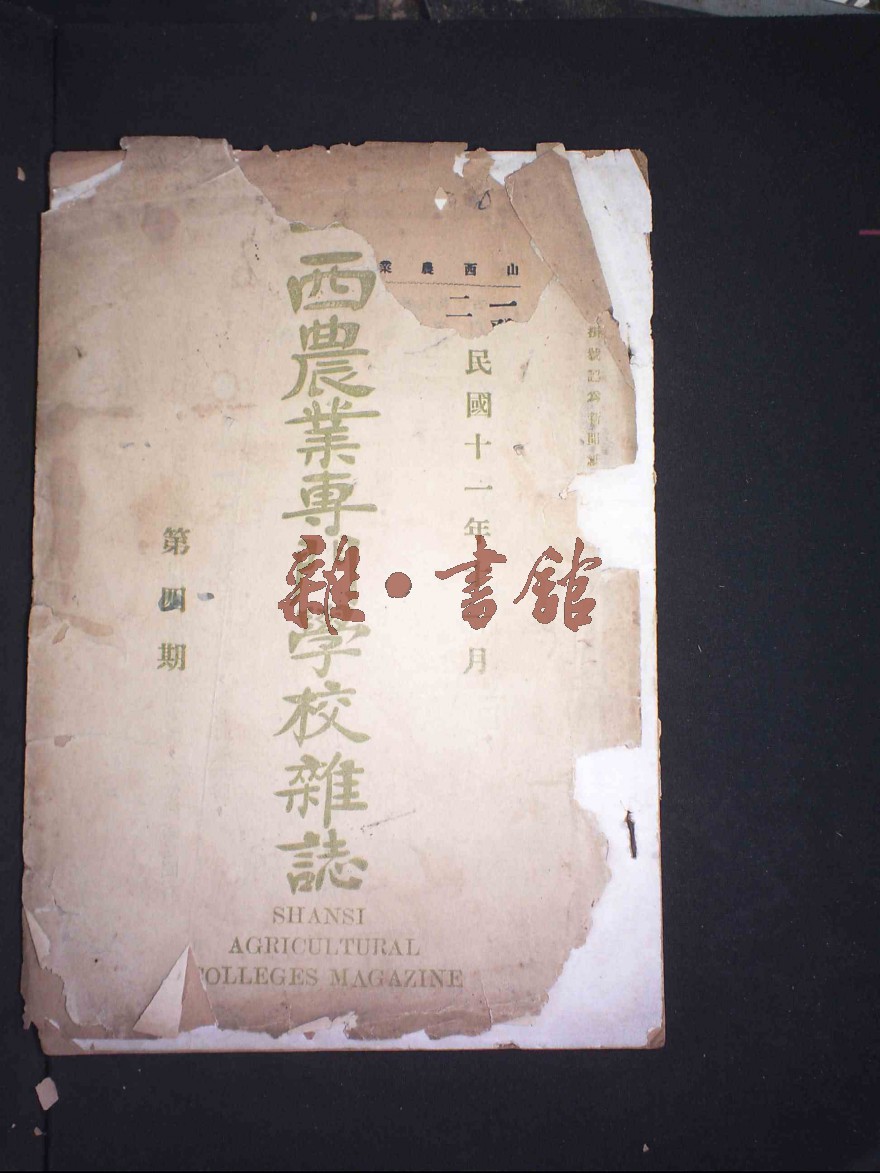 山西農業
一
二
民國十一年
月
西農業專
學校雜誌
第四期
SHANSI
AGRICULTURAL
COLLEGES MAGAZINE
雜·書館